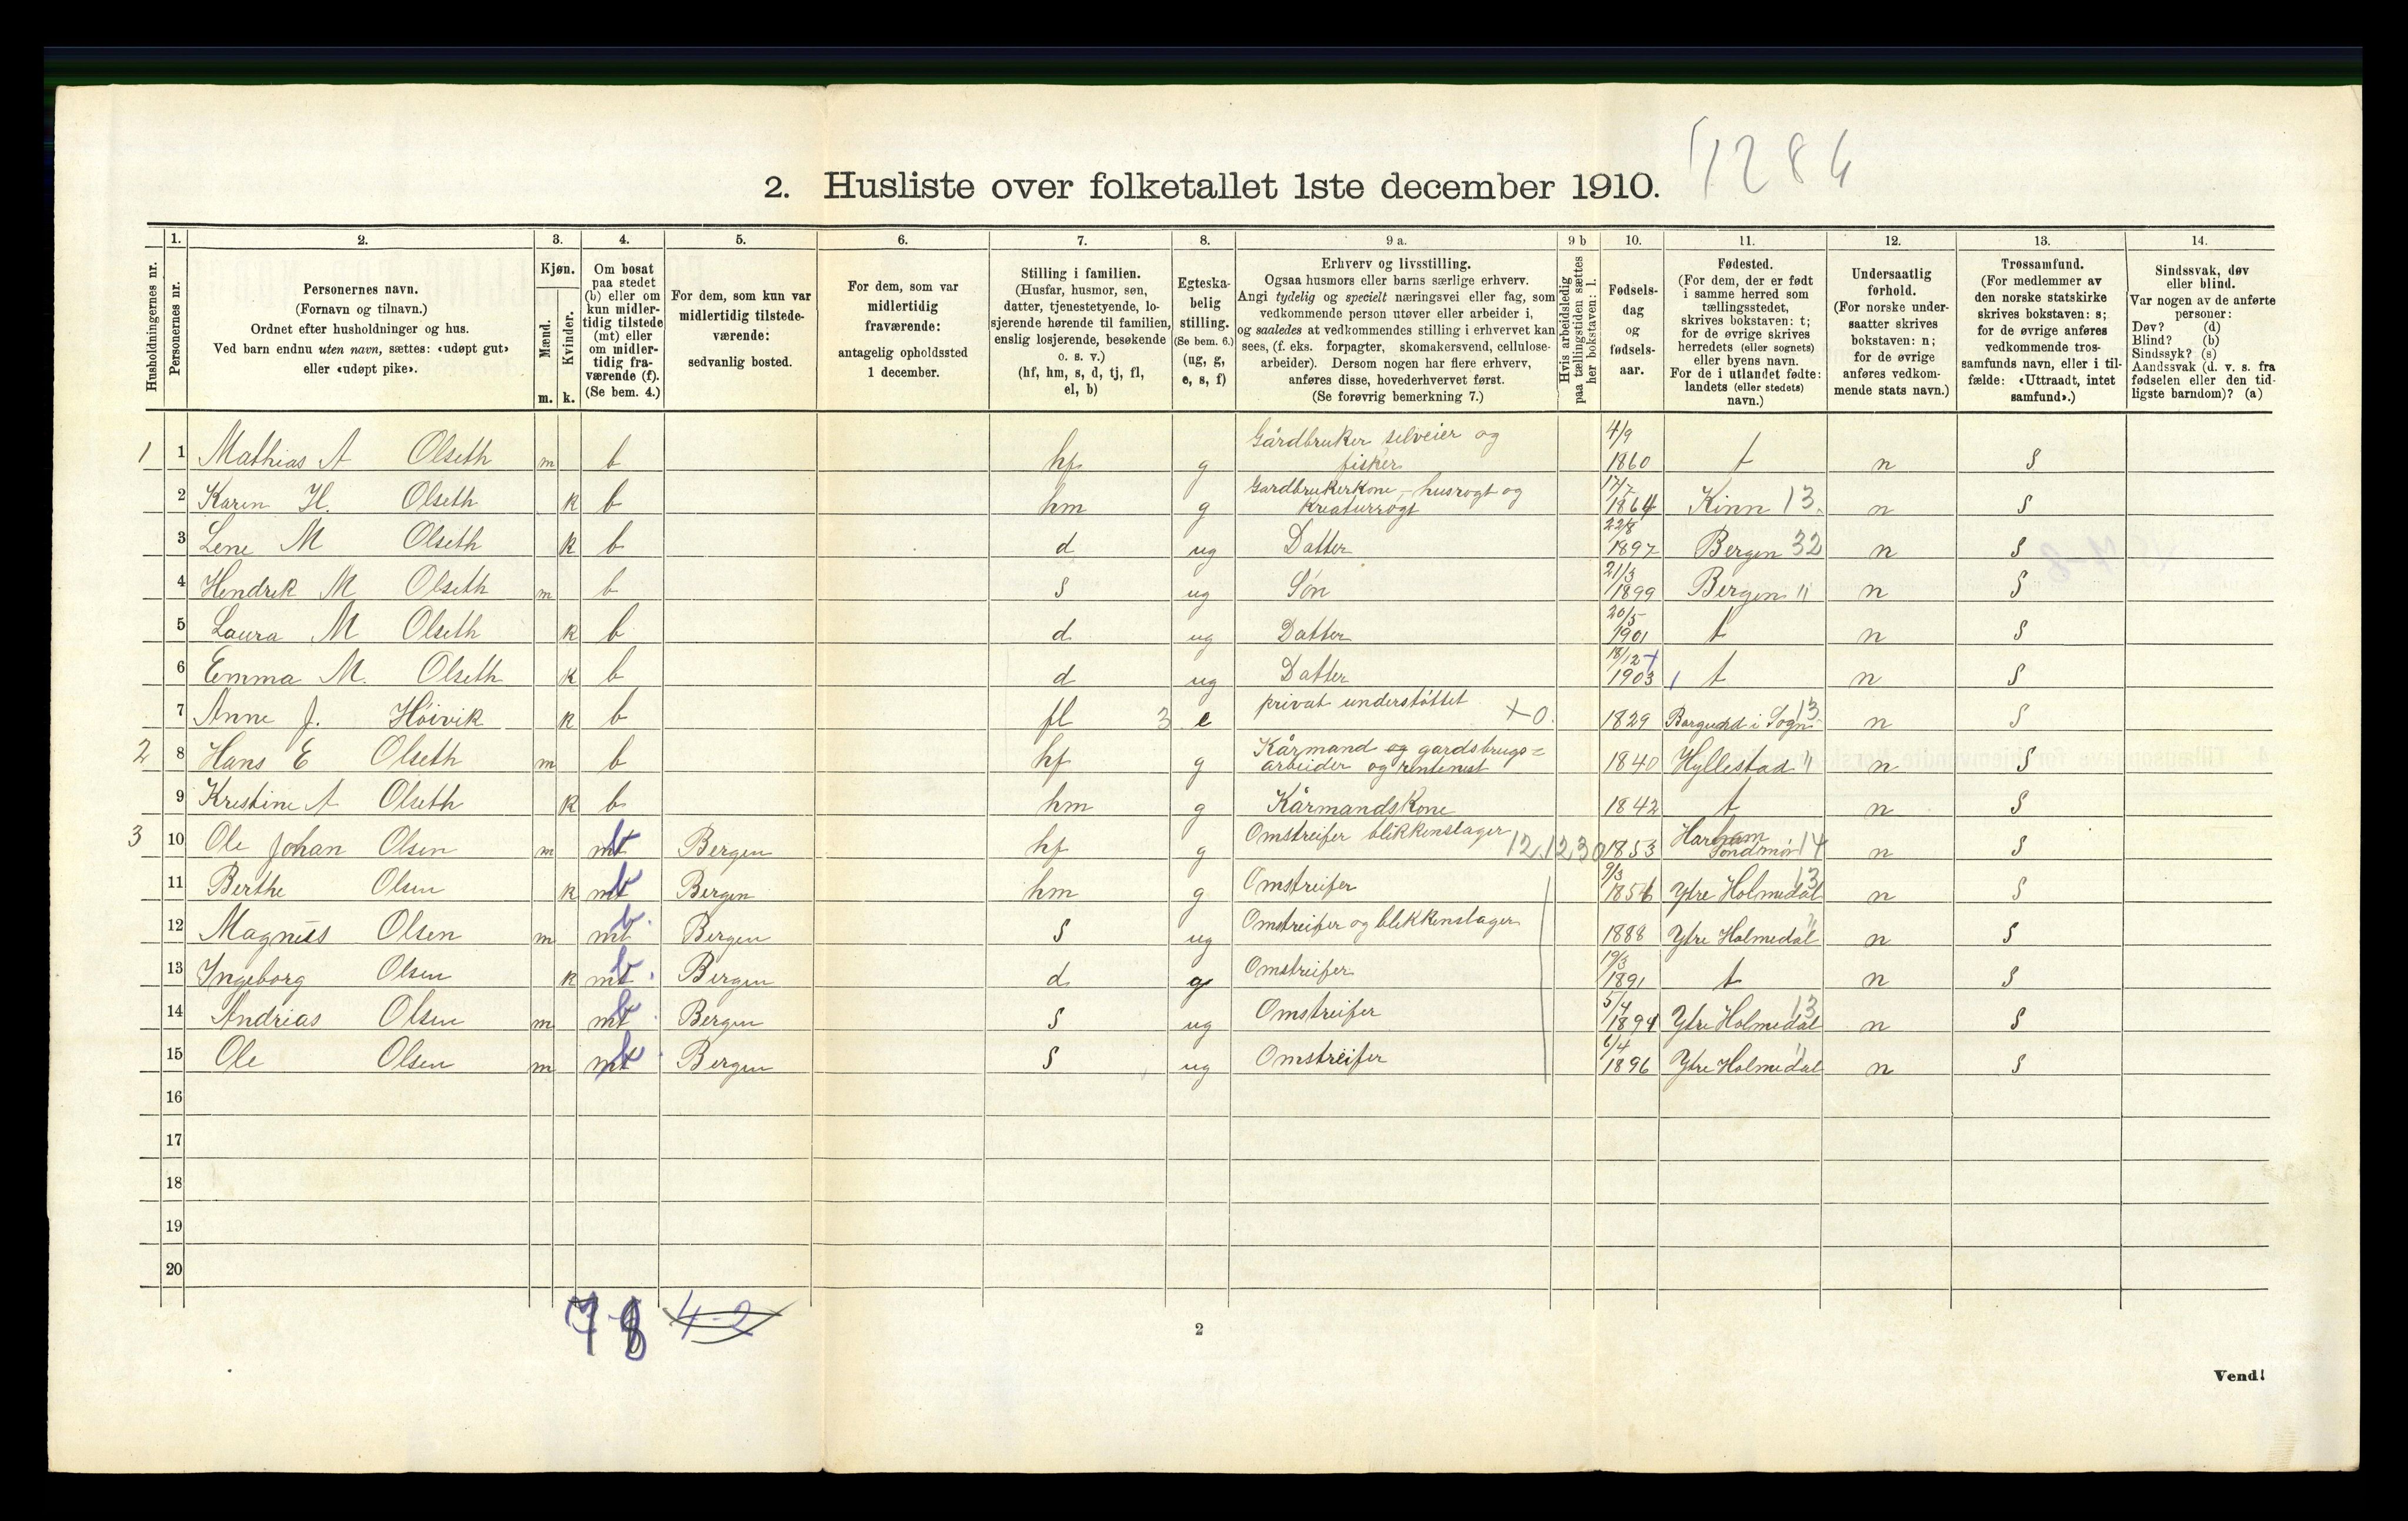 1284
2. Husliste over folketallet 1ste december 1910.
Husholdningernes nr.
1.
Personernes nr.
2.
Personernes navn.
(Fornavn og tilnavn.)
Ordnet efter husholdninger og hus.
Ved barn endnu uten navn, sættes: «udøpt gut»
eller «udøpt pike».
3.
Kjøn.
Mænd.
Kvinder.
m. k.
4.
Om bosat
paa stedet
(b) eller om
kun midler-
tidig tilstede
(mt) eller
om midler-
tidig fra-
værende (f).
(Se bem. 4.)
5.
For dem, som kun var
midlertidig tilstede-
værende:
sedvanlig bosted.
6.
For dem, som var
midlertidig
fraværende:
antagelig opholdssted
1 december.
7.
Stilling i familien.
(Husfar, husmor, søn,
datter, tjenestetyende, lo-
sjerende hørende til familien,
enslig losjerende, besøkende
o. s. v.)
(hf, hm, s, d, tj, fl,
el, b)
8.
Egteska-
belig
stilling.
(Se bem. 6.)
(ug, g,
e, s, f)
9 a.
Erhverv og livsstilling.
Ogsaa husmors eller barns særlige erhverv.
Angi tydelig og specielt næringsvei eller fag, som
vedkommende person utøver eller arbeider i,
og saaledes at vedkommendes stilling i erhvervet kan
sees, (f. eks. forpagter, skomakersvend, cellulose-
arbeider). Dersom nogen har flere erhverv,
anføres disse, hovederhvervet først.
(Se forøvrig bemerkning 7.)
9 b
Hvis arbeidsledig
paa tællingstiden sættes
her bokstaven: l.
10.
Fødsels-
dag
og
fødsels-
aar.
11.
Fødested.
(For dem, der er født
i samme herred som
tællingsstedet,
skrives bokstaven: t;
for de øvrige skrives
herredets (eller sognets)
eller byens navn.
For de i utlandet fødte:
landets (eller stedets)
navn.)
12.
Undersaatlig
forhold.
(For norske under-
saatter skrives
bokstaven: n;
for de øvrige
anføres vedkom-
mende stats navn.)
13.
Trossamfund.
(For medlemmer av
den norske statskirke
skrives bokstaven: s;
for de øvrige anføres
vedkommende tros-
samfunds navn, eller i til-
fælde: «Uttraadt, intet
samfund».)
14.
Sindssvak, døv
eller blind.
Var nogen av de anførte
personer:
Døv? (d)
Blind? (b)
Sindssyk? (s)
Aandssvak (d. v. s. fra
fødselen eller den tid-
ligste barndom)? (a)
1 1 Mathias A Olseth m b hf g Gårdbruker selveier og fisker 4/9 1860 t n s
2 Karen H. Olseth k b hm g Gardbrukerkone - husrøgt og kreaturrøgt 17/7 1864 Kinn 13. n s
3 Lene M Olseth k b d ug Datter 22/8 1897 Bergen 32 n s
4 Hendrik M Olseth m b s ug Søn 21/3 1899 Bergen " n s
5 Laura M Olseth k b d ug Datter 20/5 1901 t n s
6 Emma M. Olseth k b d ug Datter 18/12 1903 t n s
7 Anne J. Höivik k b fl 3 e privat understöttet +0. 1829 Borgund i Sogn 13 n s
2 8 Hans E Olseth m b hf g Kårmand og gardsbrugs= arbeider og rentenist 1840 Hyllestad " n s
9 Kristine A Olseth k b hm g Kårmandskone 1842 t n s
3 10 Ole Johan Olsen m mt b Bergen hf g Omstreifer blikkenslager 12.12.30 1853 Harham Söndmör 14 n s
11 Berthe Olsen k mt b Bergen hm g Omstreifer 9/3 1856 Ytre Holmedal 13 n s
12 Magnus Olsen m mt b. Bergen s ug Omstreifer og blikkenslager 1888 Ytre Holmedal " n s
13 Ingeborg Olsen k mt b. Bergen d g Omstreifer 19/3 1891 t n s
14 Andrias Olsen m mt b. Bergen s ug Omstreifer 5/4 1894 Ytre Holmedal 13 n s
15 Ole Olsen m mt b. Bergen s ug Omstreifer 6/4 1896 Ytre Holmedal " n s
16
17
18
19
20
7-8 4-2
2
Vend!